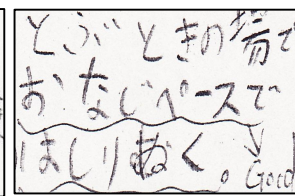 とぶときの場で
おなじペースで
はしりぬく。Good